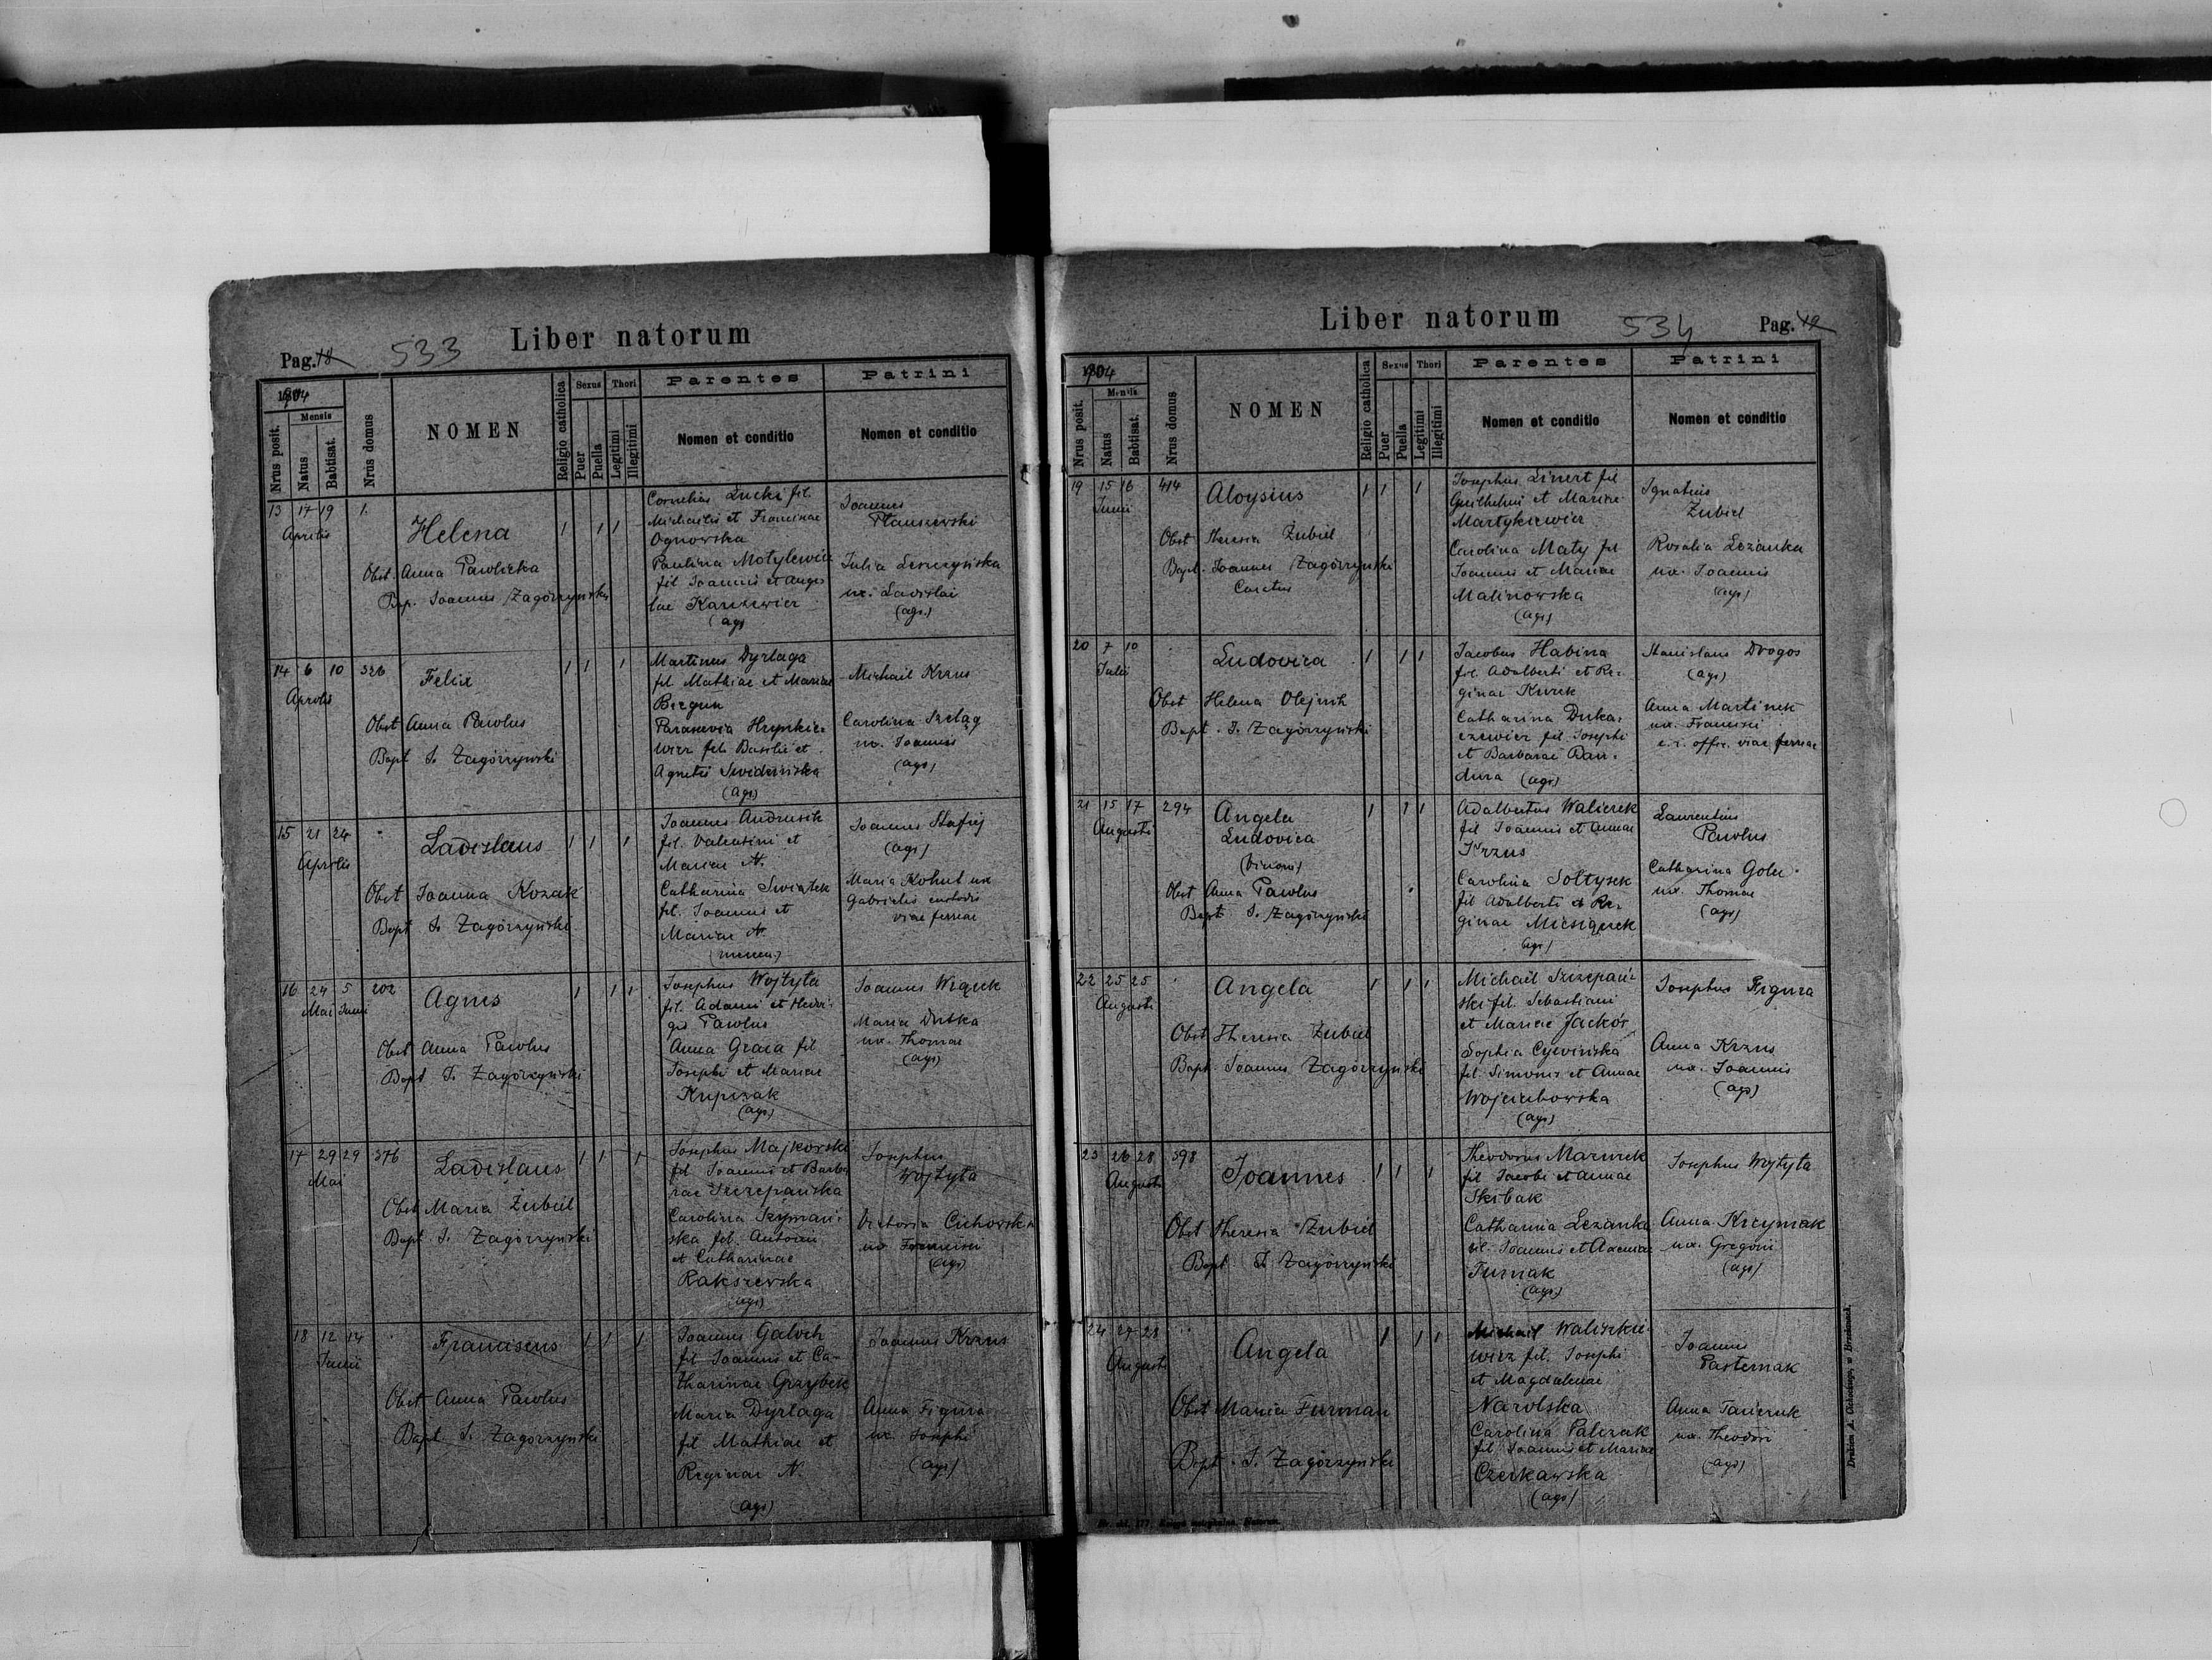 Liber natorum
Pag. 18
533
1904
Nrus posit.
Mensis
Natus
Babtisat.
Nrus domus
NOMEN
Religio catholica
Sexus
Puer
Puella
Thori
Legitimi
Illegitimi
Parentes
Nomen et conditio
Patrini
Nomen et conditio
13 17 19 1.
Aprilis
Helena
1 1 1
Obst. Anna Pawliska
Bap. Joannes Zagórzyński
Cornelius Łucki fil.
Michaelis et Franciscae
Ognowska
Paulina Motylewicz
fil Joannis et Ange
lae Karszewicz
(ags)
Joannes
Ptauszewski
Julia Leszczyńska
ux. Ladislai
(ags.)
14 6 10 326
Aprilis
Felix
1 1 1
Obst Anna Pawlus
Bapt J. Zagórzyński
Martinus Dyrlaga
fil Mathiae et Mariae
Biegun
Parascevia Hrynkie=
wicz fil. Basilii et
Agnetis Swiderska
(ags)
Michael Krzus
Carolina Szeląg
ux. Joannis
(ags)
15 21 24 "
Aprilis
Ladislaus
1 1 1
Obst Joanna Kozak
Bapt J. Zagórzyński
Joannes Andrusik
fil. Valentini et
Mariae N.
Catharina Swiątek
fil. Joannis et
Mariae N.
(mercen.)
Joannes Stafiej
(ags)
Maria Kohut ux
Gabrielis custodis
viae ferreae
16 24 5 202
Mai Junii
Agnes
1 1 1
Obst Anna Pawlus
Bapt J. Zagórzyński
Josephus Wojtyta
fil. Adami et Hedvi-
gis Pawlus
Anna Graca fil
Josephi et Mariae
Kupczak
(ags)
Joannes Wiącek
Maria Dutka
ux. Thomae
(ags)
17 29 29 376
Mai
Ladislaus
1 1 1
Obst Maria Zubiel
Bapt J. Zagórzyński
Josephus Majkowski
fil Joannis et Barba
rae Szczepańska
Carolina Szymań-
ska fil. Antonii
et Catharinae
Rakszewska
(ags)
Josephus
Wojtyta
Victoria Cichowska
ux Francisci
(ags)
18 12 14 "
Junii
Franciscus
1 1 1
Obst Anna Pawlus
Bapt J. Zagórzyński
Joannes Galoch
fil Joannis et Ca-
tharinae Grzybek
Maria Dyrlaga
fil Mathiae et
Reginae N.
(ags)
Joannes Krzus
Anna Figura
ux. Josephi
(ags)
Liber natorum
534
Pag. 49
1904
Nrus posit.
Mensis
Natus
Babtisat.
Nrus domus
NOMEN
Religio catholica
Sexus
Puer
Puella
Thori
Legitimi
Illegitimi
Parentes
Nomen et conditio
Patrini
Nomen et conditio
19 15 16 414
Junii
Aloysius
1 1 1
Obst Theresia Zubiel
Bapt. Joannes Zagórzyński
Curatus
Josephus Linert fil
Guilhelmi et Mariae
Martykiewicz
Carolina Maty fil
Joannis et Mariae
Malinowska
(ags)
Ignatius
Zubiel
Rosalia Lezanka
ux. Joannis
(ags)
20 7 10 "
Julii
Ludovica
1 1 1
Obst Helena Olejnik
Bapt. J. Zagórzyński
Jacobus Habina
fil. Adalberti et Re-
ginae Kurek
Catharina Duka-
czewicz fil. Josephi
et Barbarae Ban-
dura (ags)
Stanislaus Drogos
(ags)
Anna Martinek
ux. Francisci
c.r. offic. viae ferreae
21 15 17 294
Augusti
Angela
Ludovica
(binom)
1 1 1
Obst Anna Pawlus
Bapt J. Zagórzyński
Adalbertus Walierek
fil Joannis et Annae
Krzus
Carolina Sołtysek
fil Adalberti et Re-
ginae Miesiączek
(ags)
Laurentius
Pawlus
Catharina Golec
ux. Thomae
(ags)
22 25 25 "
Augusti
Angela
1 1 1
Obst Theresia Zubiel
Bapt. Joannes Zagórzyński
Michael Szczepań-
ski fil. Sebastiani
et Mariae Jackós
Sophia Cywińska
fil. Simonis et Annae
Wojciechowska
(ags)
Josephus Figura
Anna Krzus
ux. Joannis
(ags)
23 26 28 398
Augusti
Joannes
1 1 1
Obst Theresia Zubiel
Bapt J. Zagórzyński
Theodorus Mazurek
fil Jacobi et Annae
Skibak
Catharina Lezanka
fil. Joannis et Annae
Turniak
(ags)
Josephus Wojtyta
Anna Krzymak
ux. Gregorii
(ags)
24 27 28 "
Augusti
Angela
1 1 1
Obst Maria Furman
Bapt. J. Zagórzyński
Michael Waliszkie-
wicz fil. Josephi
et Magdalenae
Narolska
Carolina Palczak
fil Joannis et Mariae
Czerkawska
(ags)
Joannes
Pasternak
Anna Tanczuk
ux. Theodori
(ags)